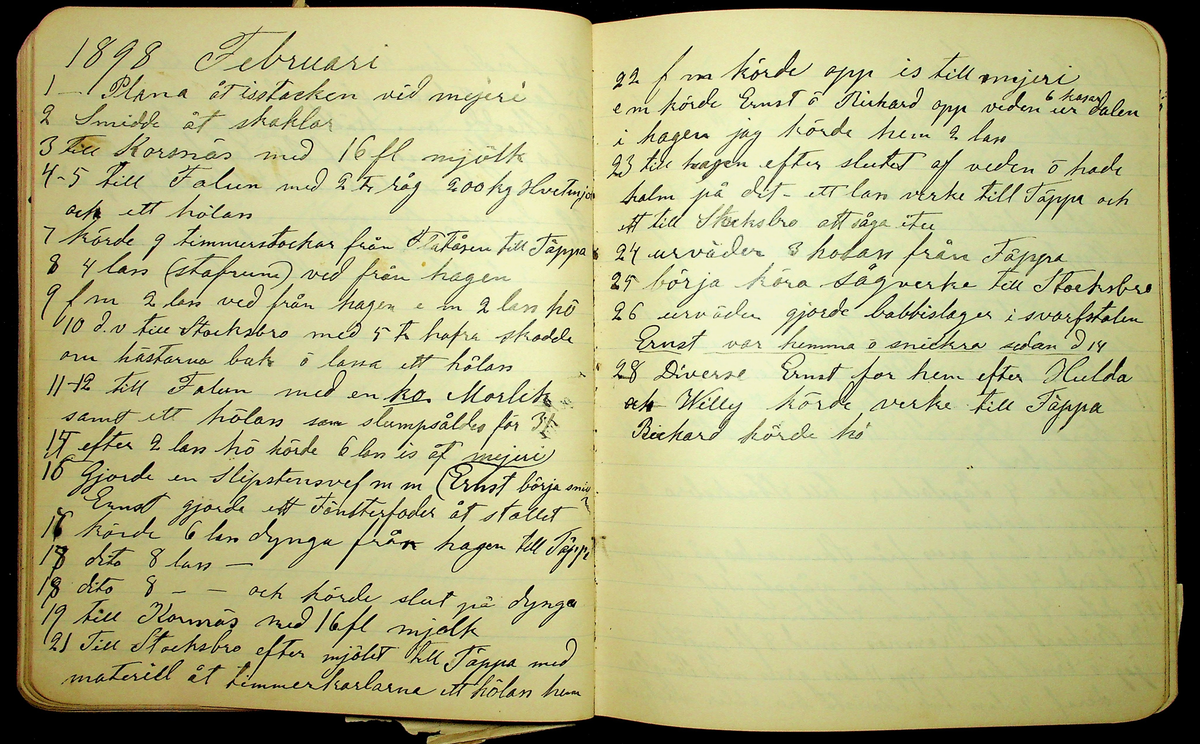 1898 Februari
1 — Plana åt isstacken vid mejeri
2 Smidde åt skaklar
3 till Korsnäs med 16 fl mjölk
4-5 till Falun med 2 tr råg 200 kg Hvetmjöl
och ett hölass
7 körde 9 timmerstockar från till Täppa
8 4 lass (stafrum) ved från hagen
9 f m 2 lass ved från hagen e m 2 lass hö
10 d.v till Stocksbro med 5 tr hafra skodde
om hästarna bak ö lassa ett hölass
11-12 till Falun med en ko Morlik
samt ett hölass som slumpsåldes för
14 efter 2 lass hö körde 6 lass is åt mejeri
15 Gjorde en Slipstensvef m m (Ernst börja
Ernst gjorde ett Fönsterfoder åt stallet
16 körde 6 lass dynga från hagen till Täppa
17 dito 8 lass —
18 dito 8 — — och körde slut på dynga
19 till Korsnäs med 16 fl mjölk
21 Till Stocksbro efter mjölet till Täppa med
materill åt timmerkarlarna ett hölass hem
22 f m körde opp is till mjeri
e m körde Ernst ö Rickard opp veden 6 kasar ur dalen
i hagen jag körde hem 2 lass
23 till hagen efter slutet af veden ö hade
halm på det - ett lass verke till Täppa och
ett till Stocksbro att såga
24 urväder 3 hölass från Täppa
25 börja köra sågverke till Stocksbro
26 urväder gjorde babbislager i svarfstolen
Ernst var hemma o snickra sedan d 14
28 Diverse Ernst for hem efter Hulda
och Willy körde verke till Täppa
Rickard körde hö